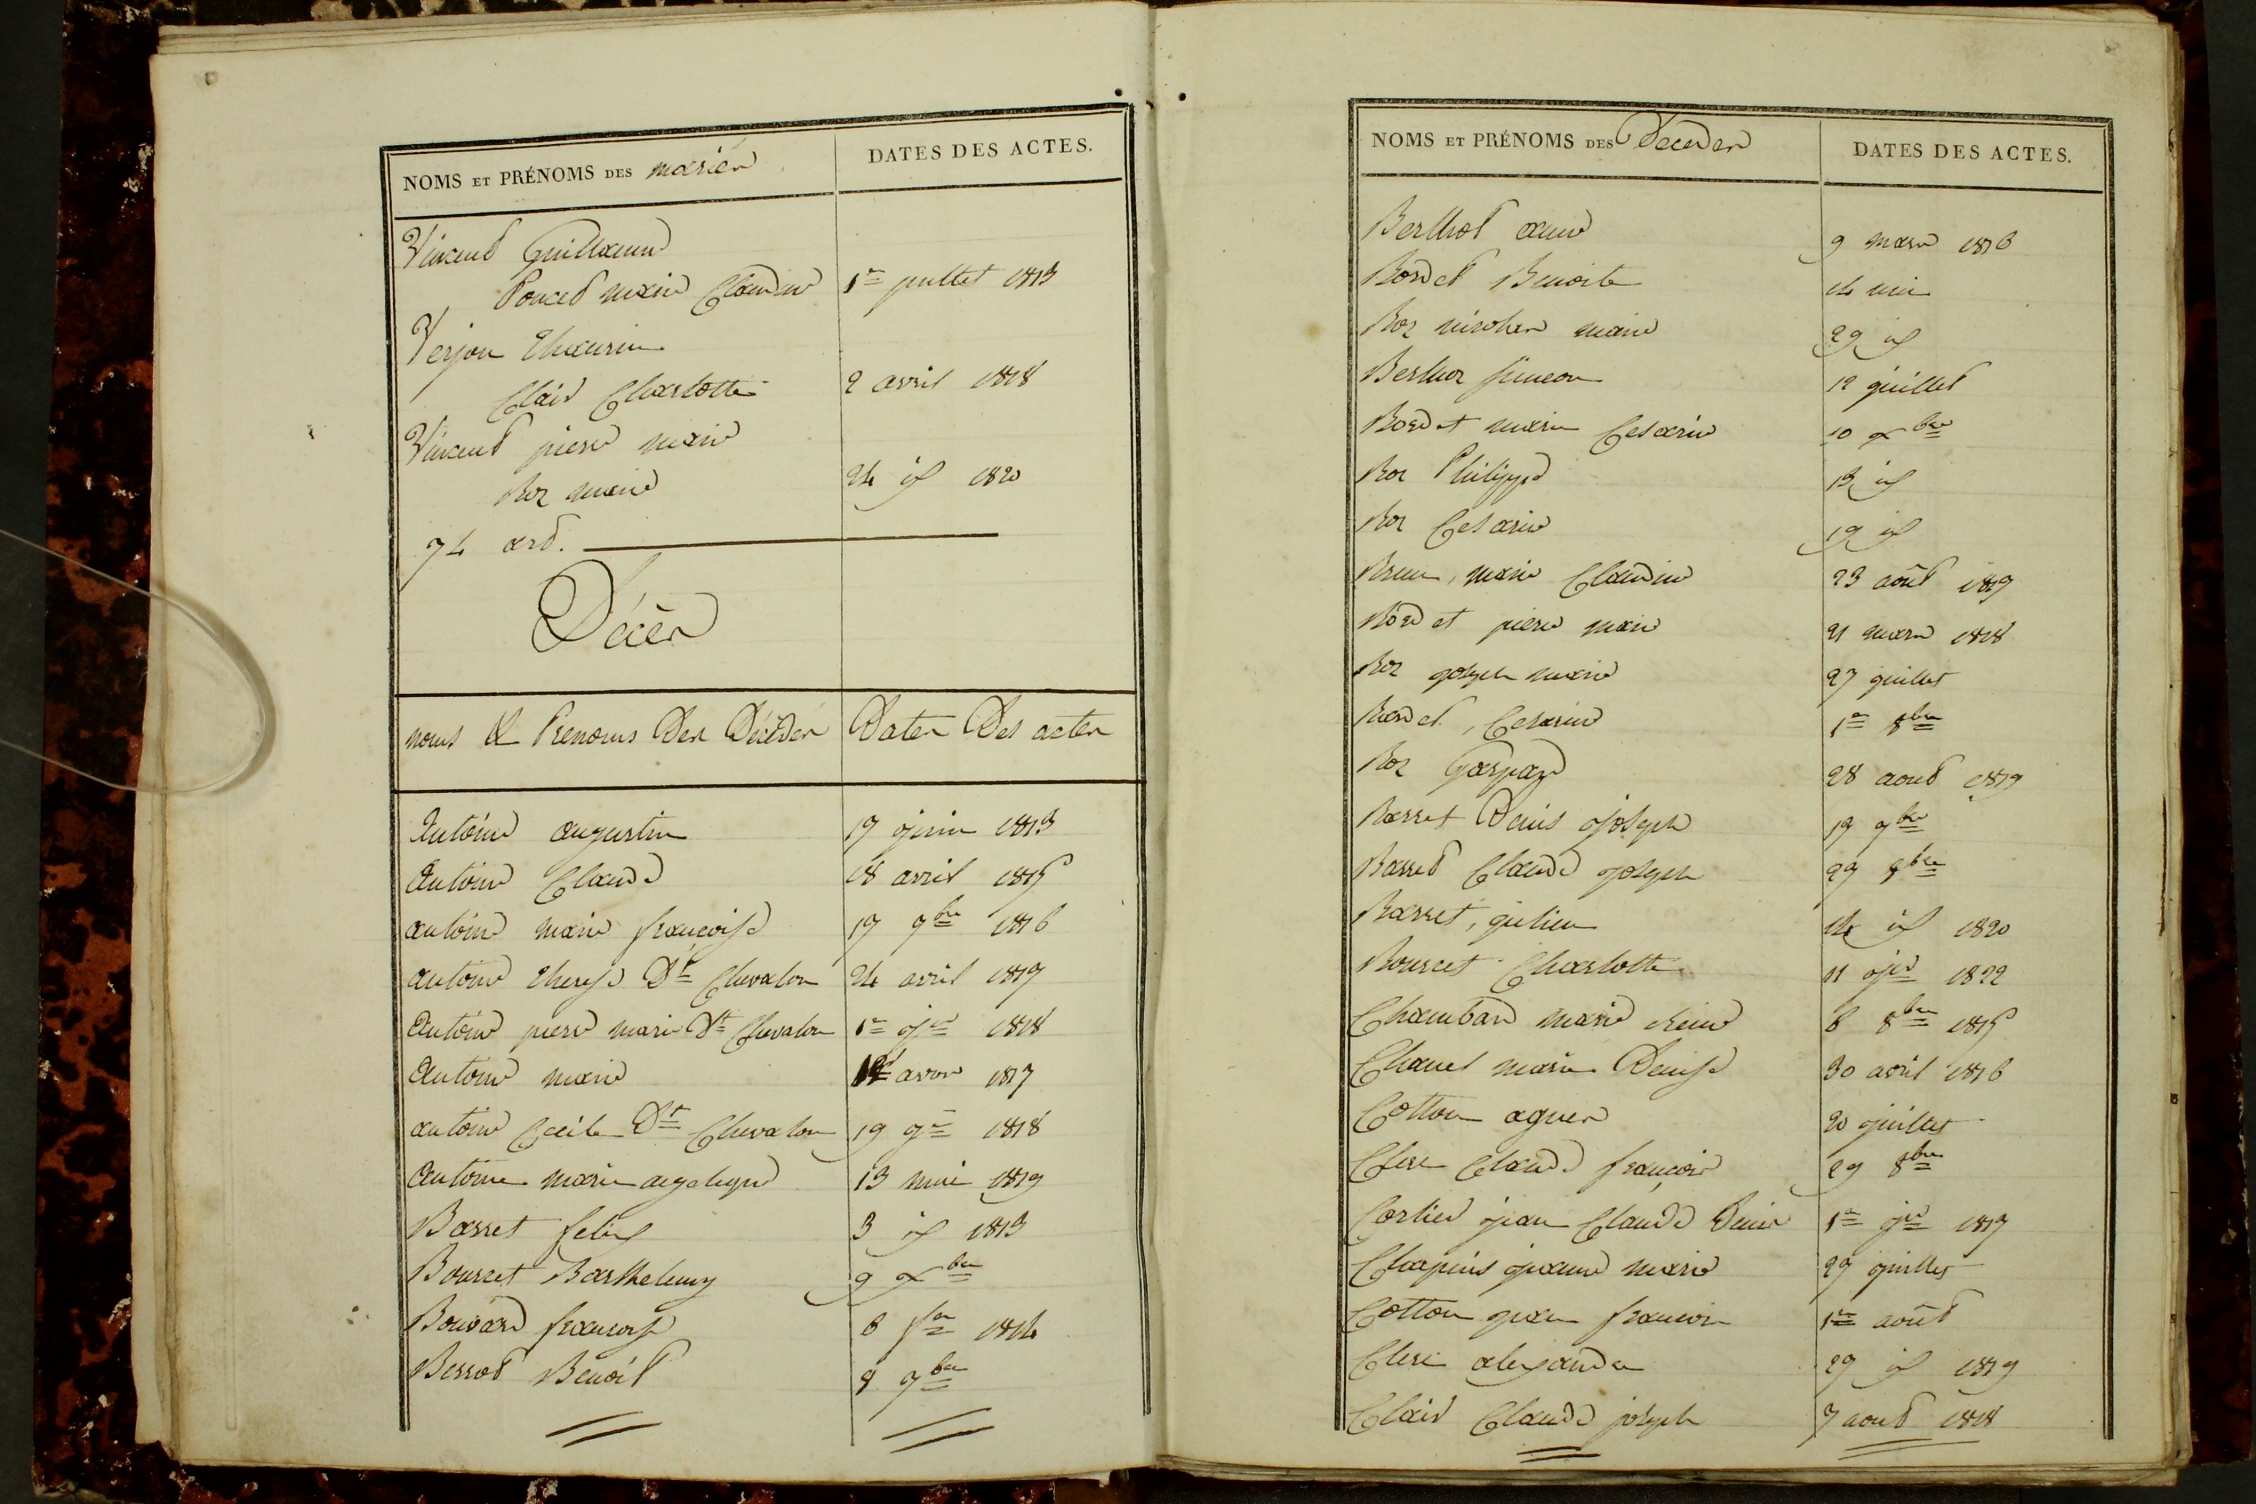 NOMS ET PRÉNOMS DES mariés
DATES DES ACTES.
Vincent Guillaume
Poncet marie Claudine 1er juillet 1813
Verjon
Clair Charlotte 2 avril 1818
Vincent pierre marie
Roz marie 24 id 1820
74 art.
Décès
noms & Prenoms Des Décédés Dates Des actes
Antoine augustin 17 juin 1813
Antoine Claude 18 avril 1815
antoine marie françoise 17 9bre 1816
antoine therese Dt Chevalon 24 avril 1817
Antoine pierre marie Dt Chevalon 1er jer 1818
Antoine marie 1817
antoine Cecile Dt Chevalon 19 1818
Antoine marie 13 mai 1819
Basset felix 3 id 1813
Bourcet Barthelemy 9 xbre
Bouvard françoise 6 1814
Berrod Benoit 8 9bre
NOMS ET PRÉNOMS DES Décédés
DATES DES ACTES.
Berthod 9 mars 1816
Bordet Benoite 14 mai
Roz nicolas marie 29 id
Berthoz simeon 12 juillet
Bordet marie Cesarie 10 xbre
Roz Philippe 13 id
Roz Cesarie 19 id
Brun, marie Claudine 23 août 1817
Bordet pierre marie 21 mars 1818
Roz joseph marie 27 juillet
Bordet, Cesarie 1er 8bre
Roz Gaspard 28 aout 1819
Basset Denis joseph 17 9bre
Basset Claude joseph 27 8bre
Basset, julien 14 id 1820
Bourcet Charlotte 11 jer 1822
Chambard marie reine 6 8bre 1815
Chanel marie Denise 30 avril 1816
Cotton agnes 20 juillet
Clere Claude françois 29 8bre
Cortier jean Claude Denis 1er jer 1817
Chapuis jeanne marie 29 juillet
Cotton jean francois 1er août
Clere alexandre 29 id 1819
Clair Claude joseph 7 aout 1818